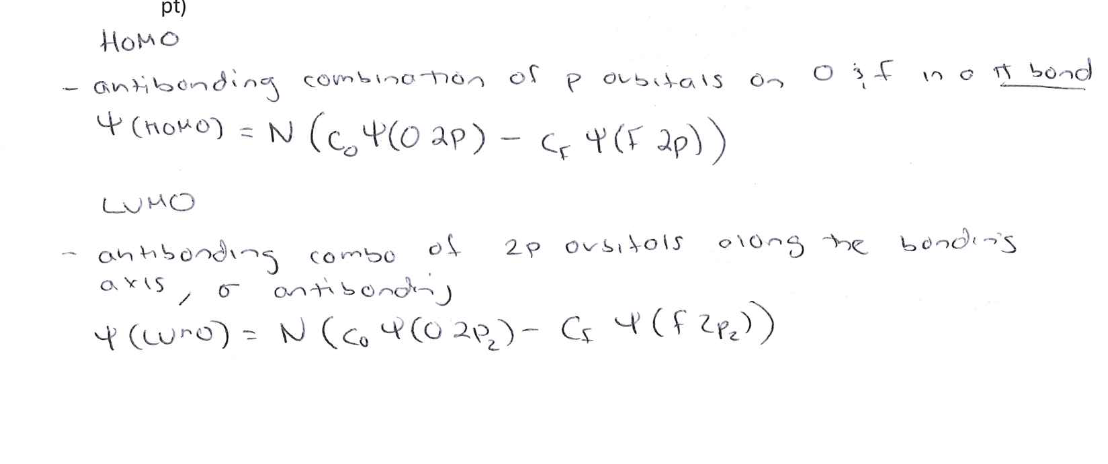 pt)
HOMO
- antibonding combination of p orbitals on O & F in a π bond
Ψ(HOMO) = N (C₀Ψ(O 2p) - C_F Ψ(F 2p))
LUMO
- antibonding combo of 2p orbitals along the bonding
axis, σ antibonding
Ψ(LUMO) = N (C₀ Ψ(O 2p_z) - C_F Ψ(F 2p_z))